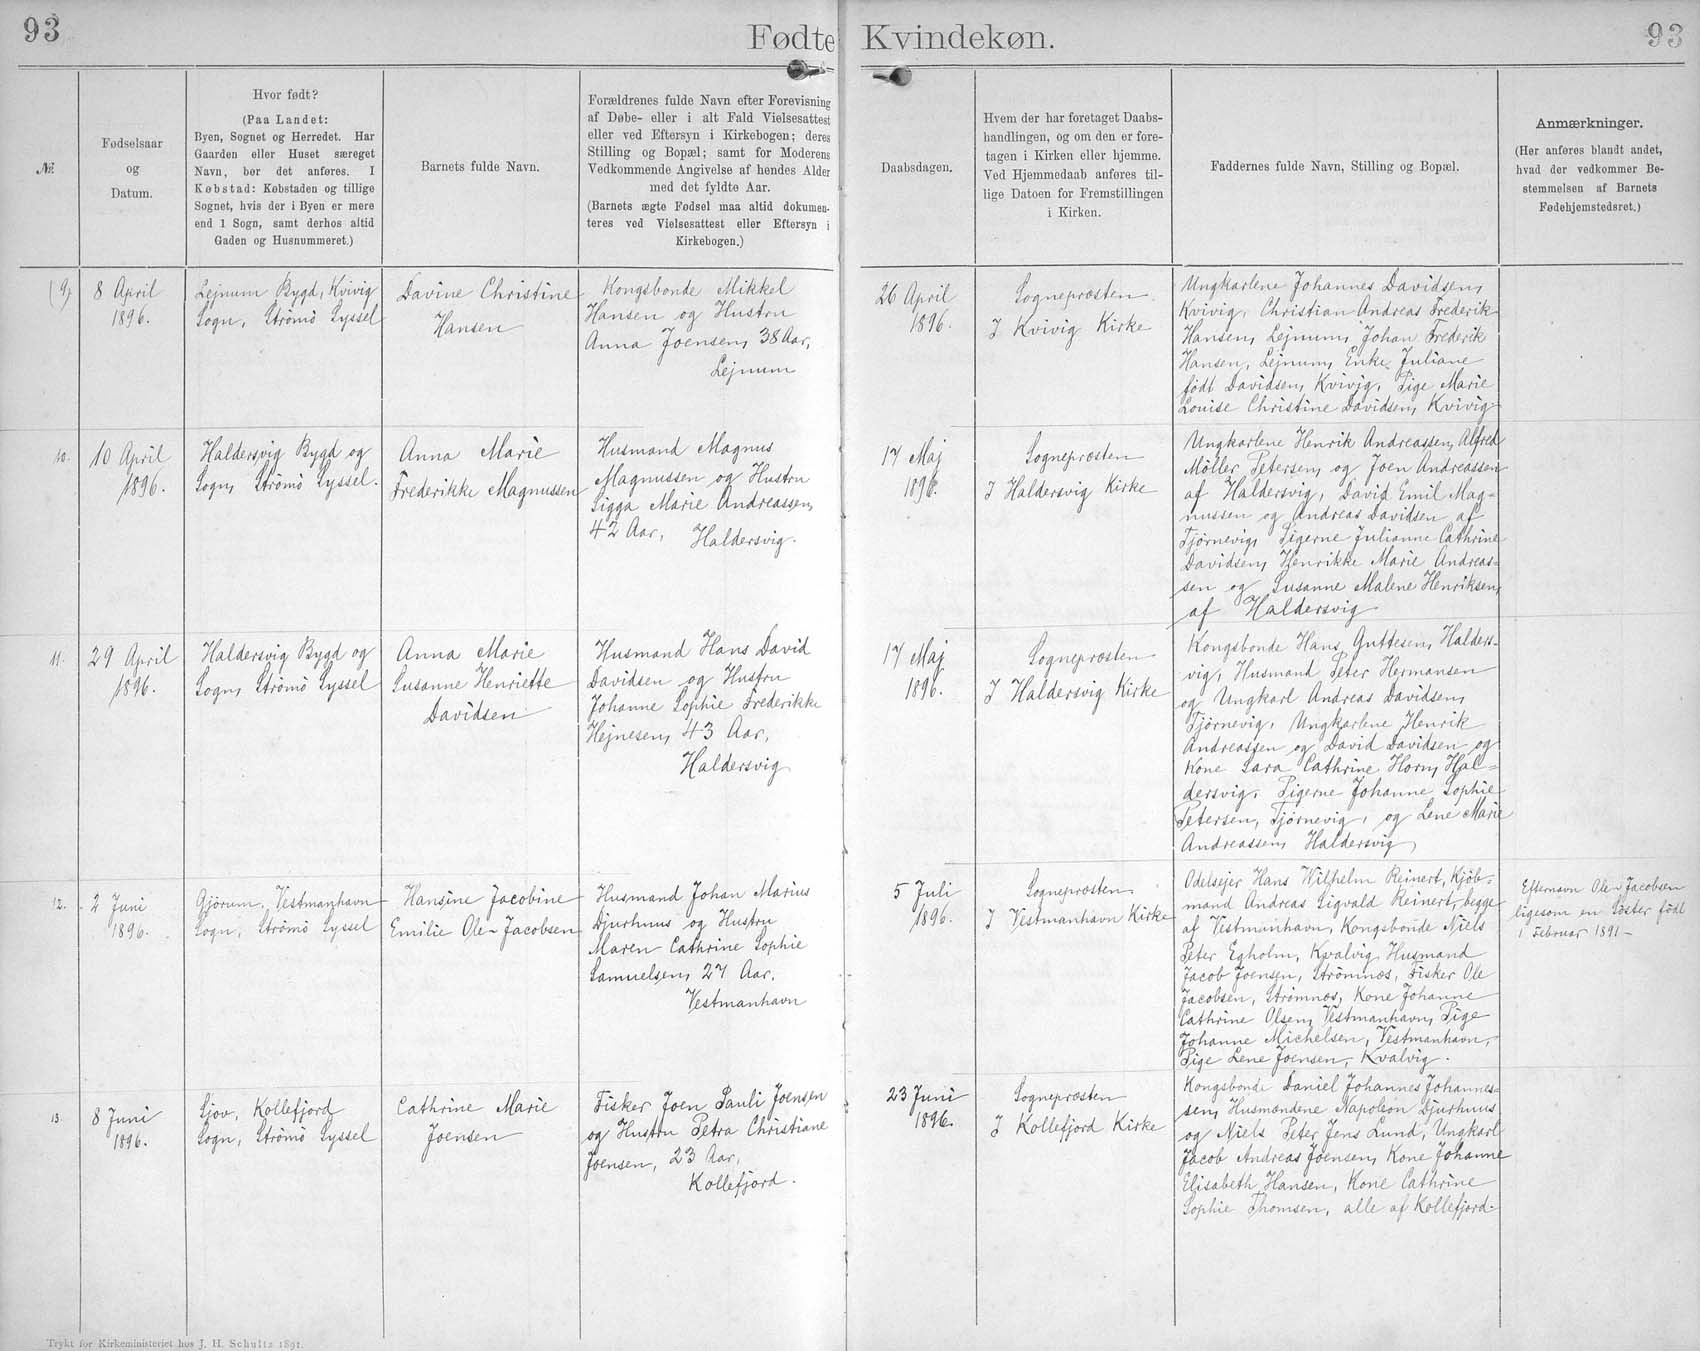 93
Fødte Kvindekøn.
93
№
Fødselsaar
og
Datum.
Hvor født?
(Paa Landet:
Byen, Sognet og Herredet. Har
Gaarden eller Huset særeget
Navn, bør det anføres. I
Købstad: Købstaden og tillige
Sognet, hvis der i Byen er mere
end 1 Sogn, samt derhos altid
Gaden og Husnummeret.)
Barnets fulde Navn.
Forældrenes fulde Navn efter Forevisning
af Døbe- eller i alt Fald Vielsesattest
eller ved Eftersyn i Kirkebogen; deres
Stilling og Bopæl; samt for Moderens
Vedkommende Angivelse af hendes Alder
med det fyldte Aar.
(Barnets ægte Fødsel maa altid dokumen-
teres ved Vielsesattest eller Eftersyn i
Kirkebogen.)
Daabsdagen.
Hvem der har foretaget Daabs-
handlingen, og om den er fore-
tagen i Kirken eller hjemme.
Ved Hjemmedaab anføres til-
lige Datoen for Fremstillingen
i Kirken.
Faddernes fulde Navn, Stilling og Bopæl.
Anmærkninger.
(Her anføres blandt andet,
hvad der vedkommer Be-
stemmelsen af Barnets
Fødehjemstedsret.)
(9)
8 April
1896.
Lejnum Bygd, Kvivig
Sogn, Strømö Syssel
Davine Christine
Hansen
Kongsbonde Mikkel
Hansen og Hustru
Anna Joensen, 38 Aar,
Lejnum
26 April
1896.
Sognepræsten
I Kvivig Kirke
Ungkarlene Johannes Davidsen,
Kvivig, Christian Andreas Frederik
Hansen, Lejnum, Johan Frederik
Hansen, Lejnum, Enke Juliane
født Davidsen, Kvivig, Pige Marie
Louise Christine Davidsen, Kvivig
10.
10 April
1896.
Haldersvig Bygd og
Sogn, Strömö Syssel.
Anna Marie
Frederikke Magnussen
Husmand Magnus
Magnussen og Hustru
Sigga Marie Andreassen,
42 Aar, Haldersvig.
17 Maj
1896.
Sognepræsten
I Haldersvig Kirke
Ungkarlene Henrik Andreassen, Alfred
Möller Petersen, og Joen Andreassen
af Haldersvig, David Emil Mag-
nussen og Andreas Davidsen af
Tjørnevig, Pigerne Julianne Cathrine
Davidsen, Henrikke Marie Andreas-
sen og Susanne Malene Henriksen,
af Haldersvig
11.
29 April
1896.
Haldersvig Bygd og
Sogn, Strömö Syssel
Anna Marie
Susanne Henriette
Davidsen
Husmand Hans David
Davidsen og Hustru
Johanne Sophie Frederikke
Hejnesen, 43 Aar,
Haldersvig
17 Maj
1896.
Sognepræsten
I Haldersvig Kirke
Kongsbonde Hans Guttesen, Halders-
vig, Husmand Peter Hermansen
og Ungkarl Andreas Davidsen,
Tjørnevig, Ungkarlene Henrik
Andreassen og David Davidsen og
Kone Sara Cathrine Horn, Hal-
dersvig, Pigerne Johanne Sophie
Petersen, Tjörnevig, og Lene Marie
Andreassen, Haldersvig
12.
2 Juni
1896.
Gjórum, Vestmanhavn
Sogn, Strömö Syssel
Hansine Jacobine
Emilie Ole-Jacobsen
Husmand Johan Marius
Djurhuus og Hustru
Maren Cathrine Sophie
Samuelsen, 27 Aar,
Vestmanhavn
5 Juli
1896.
Sognepræsten
I Vestmanhavn Kirke
Odelsejer Hans Wilhelm Reinert, Kjöb-
mand Andreas Sigvald Reinert, begge
af Vestmanhavn, Kongsbonde Niels
Peter Egholm, Kvalvig, Husmand
Jacob Joensen, Strömnæs, Fisker Ole
Jacobsen, Strømnæs, Kone Johanne
Cathrine Olsen, Vestmanhavn, Pige
Johanne Michelsen, Vestmanhavn,
Pige Lene Joensen, Kvalvig.
Efternavn Ole-Jacobsen
ligesom en Søster født
1 Februar 1891-
13.
8 Juni
1896.
Sjov, Kollefjord
Sogn, Strömö Syssel
Cathrine Marie
Joensen
Fisker Joen Pauli Joensen
og Hustru Petra Christiane
Joensen, 23 Aar,
Kollefjord.
23 Juni
1896.
Sognepræsten
I Kollefjord Kirke
Kongsbonde Daniel Johannes Johannes-
sen, Husmændene Napoleon Djurhuus
og Niels Peter Jens Lund, Ungkarl
Jacob Andreas Joensen, Kone Johanne
Elisabeth Hansen, Kone Cathrine
Sophie Thomsen, alle af Kollefjord.
Trykt for Kirkeministeriet hos J. H. Schultz 1891.